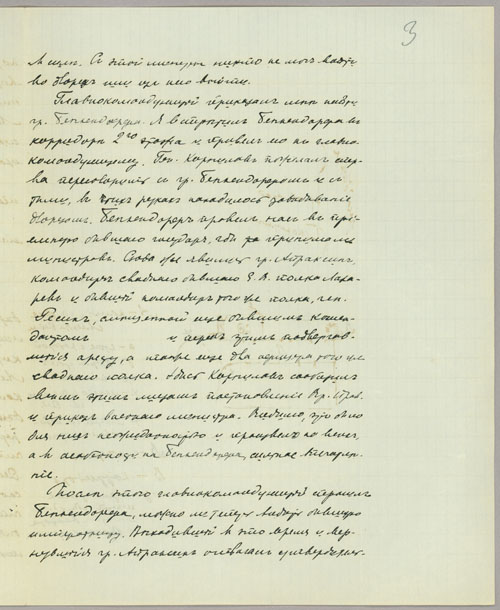 3
С этой минуты никто не мог войти
во дворец или из него выйти.
Главнокомандующий приказал мне найти
гр. Бенкендорфа. Я встретил Бенкендорфа в
коридоре 2го этажа и привел его к главно-
командующему. Ген. Корнилов пожелал
переговорить с гр. Бенкендорфом и с
теми, в чьих руках находилось заведывание
дворцом. Бенкендорф провел нас в при-
емную бывшего государя, где он принимал
министров. Сюда же явились гр. Апраксин,
командир сводного бывшего Е. В. полка Лаза-
рев и бывший командир того же полка, ген.
Ресин, смещенный еще бывшим комен-
дантом и перед этим подвергав-
шийся аресту, а также еще два офицера того же
сводного полка. Здесь Корнилов сообщил
всем этим лицам постановление Вр. Прав.
и приказ военного министра. Видимо, это было
для них неожиданностью и произвело на всех,
а в особенности на Бенкендорфа, сильное впечатле-
ние.
После этого главнокомандующий спросил
Бенкендорфа, можно ли теперь видеть бывшую
императрицу. Выходивший в это время и вер-
нувшийся гр. Апраксин